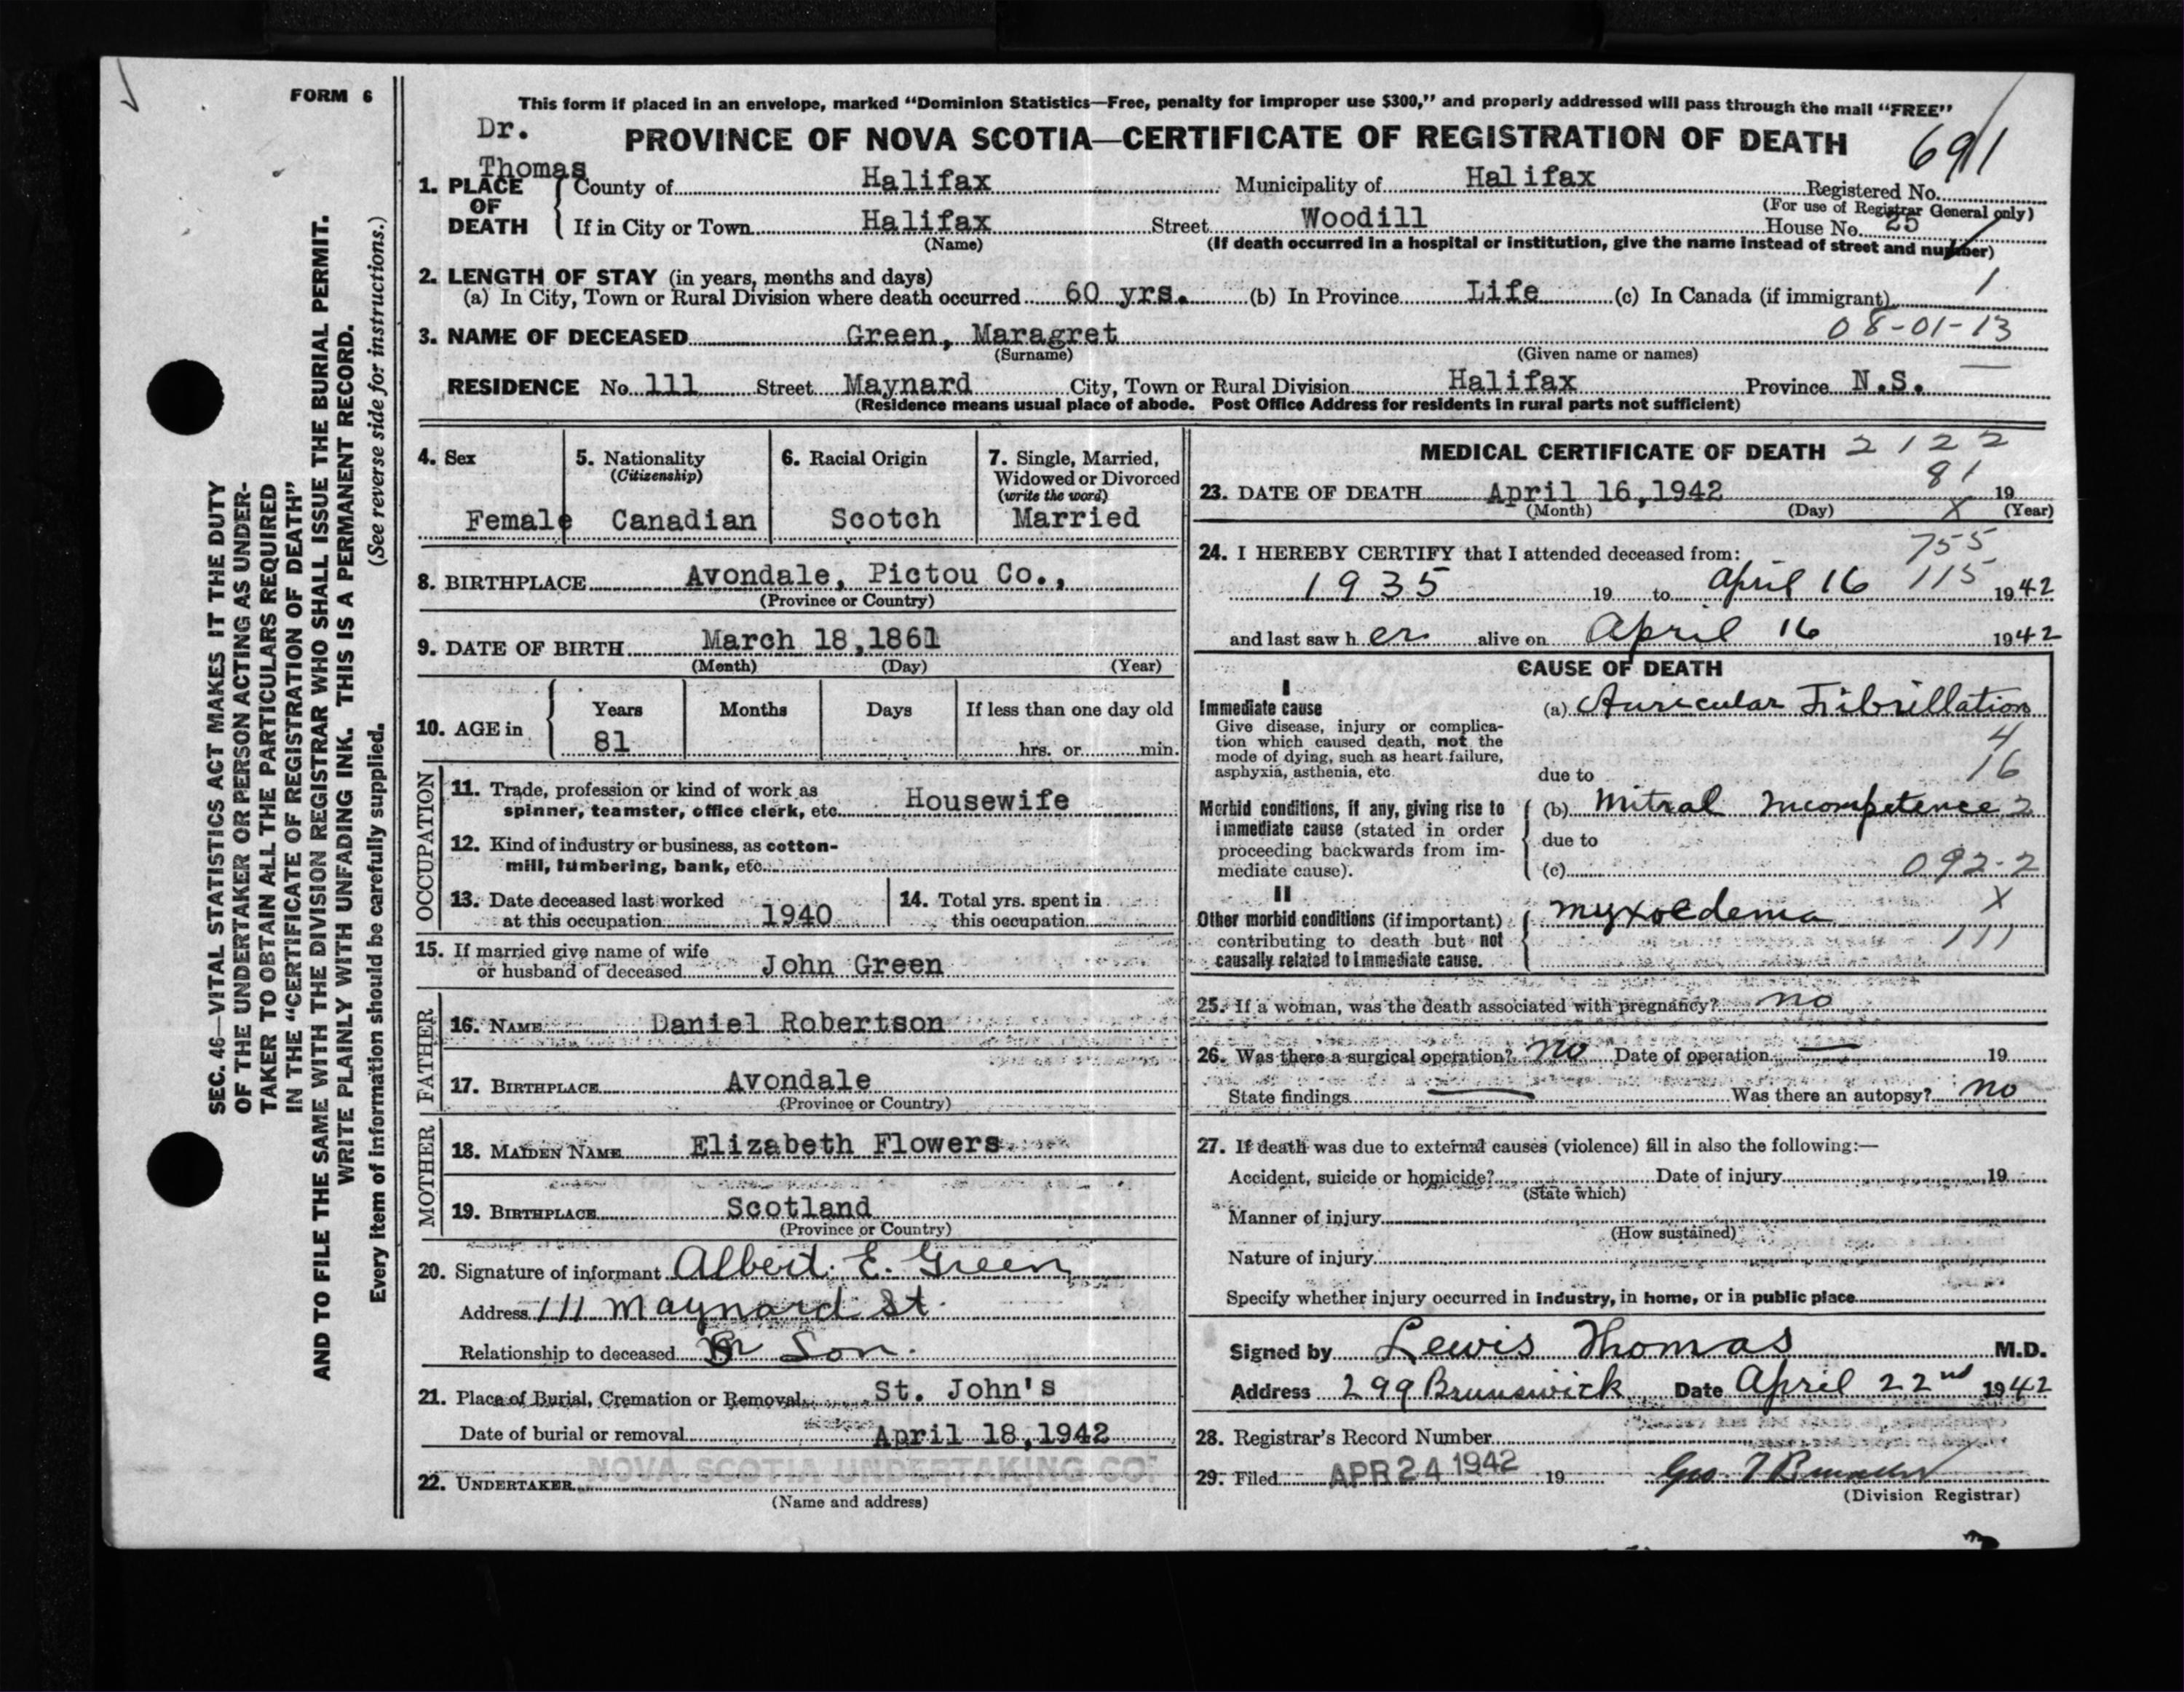 FORM 6
This form if placed in an envelope, marked “Dominion Statistics—Free, penalty for improper use $300,” and properly addressed will pass through the mail “FREE”
Dr. Thomas
PROVINCE OF NOVA SCOTIA—CERTIFICATE OF REGISTRATION OF DEATH
691
1. PLACE OF DEATH { County of Halifax Municipality of Halifax Registered No.
(For use of Registrar General only)
If in City or Town Halifax Street Woodill House No. 25
(Name) (If death occurred in a hospital or institution, give the name instead of street and number)
2. LENGTH OF STAY (in years, months and days)
(a) In City, Town or Rural Division where death occurred 60 yrs. (b) In Province Life (c) In Canada (if immigrant) 1
08-01-13
3. NAME OF DECEASED Green, Maragret
(Surname) (Given name or names)
RESIDENCE No. 111 Street Maynard City, Town or Rural Division Halifax Province N.S.
(Residence means usual place of abode. Post Office Address for residents in rural parts not sufficient)
4. Sex
Female
5. Nationality
(Citizenship)
Canadian
6. Racial Origin
Scotch
7. Single, Married,
Widowed or Divorced
(write the word)
Married
8. BIRTHPLACE Avondale, Pictou Co.,
(Province or Country)
9. DATE OF BIRTH March 18,1861
(Month) (Day) (Year)
10. AGE in { Years Months Days If less than one day old
81 hrs. or min.
OCCUPATION
11. Trade, profession or kind of work as
spinner, teamster, office clerk, etc. Housewife
12. Kind of industry or business, as cotton-
mill, lumbering, bank, etc.
13. Date deceased last worked
at this occupation 1940
14. Total yrs. spent in
this occupation
15. If married give name of wife
or husband of deceased John Green
FATHER
16. NAME Daniel Robertson
17. BIRTHPLACE Avondale
(Province or Country)
MOTHER
18. MAIDEN NAME Elizabeth Flowers
19. BIRTHPLACE Scotland
(Province or Country)
20. Signature of informant Albert E. Green
Address 111 Maynard St.
Relationship to deceased Son.
21. Place of Burial, Cremation or Removal St. John's
Date of burial or removal April 18,1942
22. UNDERTAKER NOVA SCOTIA UNDERTAKING CO.
(Name and address)
MEDICAL CERTIFICATE OF DEATH 2122
81
23. DATE OF DEATH April 16,1942 19
(Month) (Day) X (Year)
24. I HEREBY CERTIFY that I attended deceased from: 755
1935 19 to April 16 115 1942
and last saw her alive on April 16 1942
CAUSE OF DEATH
I
Immediate cause (a) Auricular Fibrillation
Give disease, injury or complica-
tion which caused death, not the
mode of dying, such as heart failure,
asphyxia, asthenia, etc.
4
16
due to
Morbid conditions, if any, giving rise to
immediate cause (stated in order
proceeding backwards from im-
mediate cause).
(b) Mitral Incompetence 2
due to
(c) 092-2
II
Other morbid conditions (if important)
contributing to death but not
causally related to immediate cause.
Myxoedema X
111
25. If a woman, was the death associated with pregnancy? no
26. Was there a surgical operation? No Date of operation — 19
State findings — Was there an autopsy? no
27. If death was due to external causes (violence) fill in also the following:—
Accident, suicide or homicide? Date of injury 19
(State which)
Manner of injury
(How sustained)
Nature of injury
Specify whether injury occurred in industry, in home, or in public place
Signed by Lewis Thomas M.D.
Address 299 Brunswick Date April 22nd 1942
28. Registrar's Record Number
29. Filed APR 24 1942 19
(Division Registrar)
SEC. 46—VITAL STATISTICS ACT MAKES IT THE DUTY
OF THE UNDERTAKER OR PERSON ACTING AS UNDER-
TAKER TO OBTAIN ALL THE PARTICULARS REQUIRED
IN THE “CERTIFICATE OF REGISTRATION OF DEATH”
AND TO FILE THE SAME WITH THE DIVISION REGISTRAR WHO SHALL ISSUE THE BURIAL PERMIT.
WRITE PLAINLY WITH UNFADING INK. THIS IS A PERMANENT RECORD.
Every item of information should be carefully supplied. (See reverse side for instructions.)